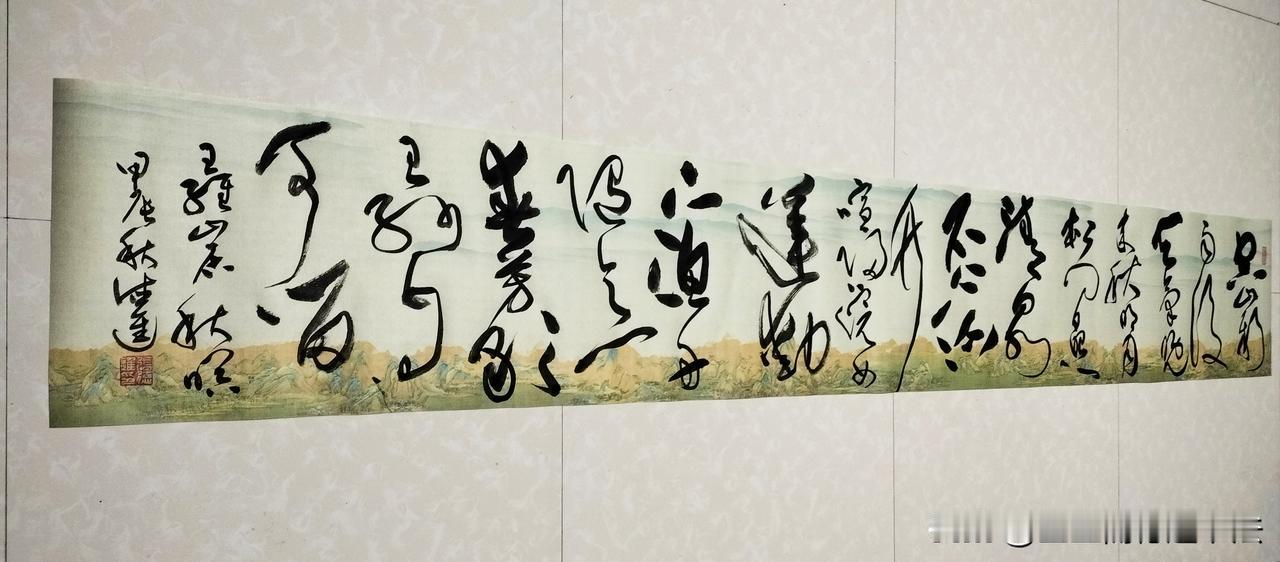 空山新
雨後
天氣晚
来秋明月
松间照
清泉
石上流
竹
喧归浣女
莲动
下渔舟
随意
春芳歇
王孙自
可留
王維山居秋暝
甲辰秋